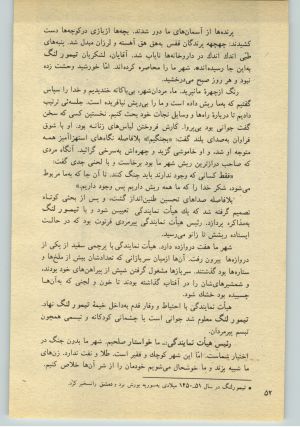 پرنده‌ها از آسمان‌های ما دور شدند. بچه‌ها از بازی در کوچه‌ها دست
کشیدند؛ چهچهه پرندگان قفس به‌هق هق آهسته و لرزان مبدل شد. پنبه‌های
طبی انداد انداد در داروخانه‌ها نایاب شد. آقایان، لشکریان تیمور لنگ
به‌این جا رسیده‌اند». شهر ما را محاصره کرده‌اند. امّا خورشید وحشت زده
نبود و هر روز صبح می‌درخشید.
رنگ از چهرهٔ مانپرید. ما، مردان شهر، بی‌باکانه خندیدیم و خدا را سپاس
گفتیم که به‌ما ریش داده است و ما را بی‌ریش نیافریده است. جلسه‌ئی ترتیب
دادیم تا دربارهٔ راه‌ها و وسایل نجات خود بحث کنیم. نخستین کسی که سخن
گفت جوانی بود بی‌پروا، کارش فروختن لباس‌های زنانه بود. او با شوق
فراوان به‌صدای بلند گفت: «بجنگیم» بلافاصله نگاه‌های استهزاآمیز همه
متوجه او شد، و او خاموشی گزید و چهره‌اش به‌سرخی گرائید. آنگاه مردی
که صاحب درازترین ریش شهر ما بود برخاست و با لحنی جدی گفت:
«فقط کسانی که وجود ندارند باید جنگ کنند. تا آن جا که به‌ما مربوط
می‌شود، شکر خدا را که ما همه ریش داریم پس وجود داریم.»
بلافاصله صداهای تحسین طنین‌انداز گشت، و پس از بحثی کوتاه
تصمیم گرفته شد که یك هیأت نمایندگی تعیین شود و با تیمور لنگ
به‌مذاکره پردازد. رئیس هیأت نمایندگی پیرمردی فرتوت بود که در حالت
ایستاده ریشش تا زانو می‌رسید.
شهر ما هفت دروازه دارد. هیأت نمایندگی با پرچمی سفید از یکی از
دروازه‌ها بیرون رفت. آن‌ها از میان سربازانی که تعدادشان بیش از ملخ‌ها و
ستاره‌ها بود گذشتند. سربازها مشغول گرفتن شپش از پیراهن‌های خود بودند،
و شمشیرهای‌شان را در آفتاب گذاشته بودند تا خون و لجنی که به‌آن‌ها
چسبیده بود خشك شود.
هیأت نمایندگی با احتیاط و وقار قدم به‌داخل خیمهٔ تیمور لنگ نهاد.
تیمور لنگ معلوم شد جوانی است با چشمانی کودکانه و تبسمی همچون
تبسم پیرمردان.
رئیس هیأت نمایندگی:.. ما خواستار صلحیم. شهر ما بدون جنگ در
اختیار شماست. امّا این شهر کوچك و فقیر است. طلا و نفت ندارد. زن‌های
ما شبیه بزند و ما خوشحال می‌شویم که خودمان را از شر آن‌ها خلاص کنیم.
* تیمورلنگ در سال ۵۱ـ۱۴۵۰ میلادی به‌سوریه یورش برد و دمشق را تسخیر کرد.
۵۲